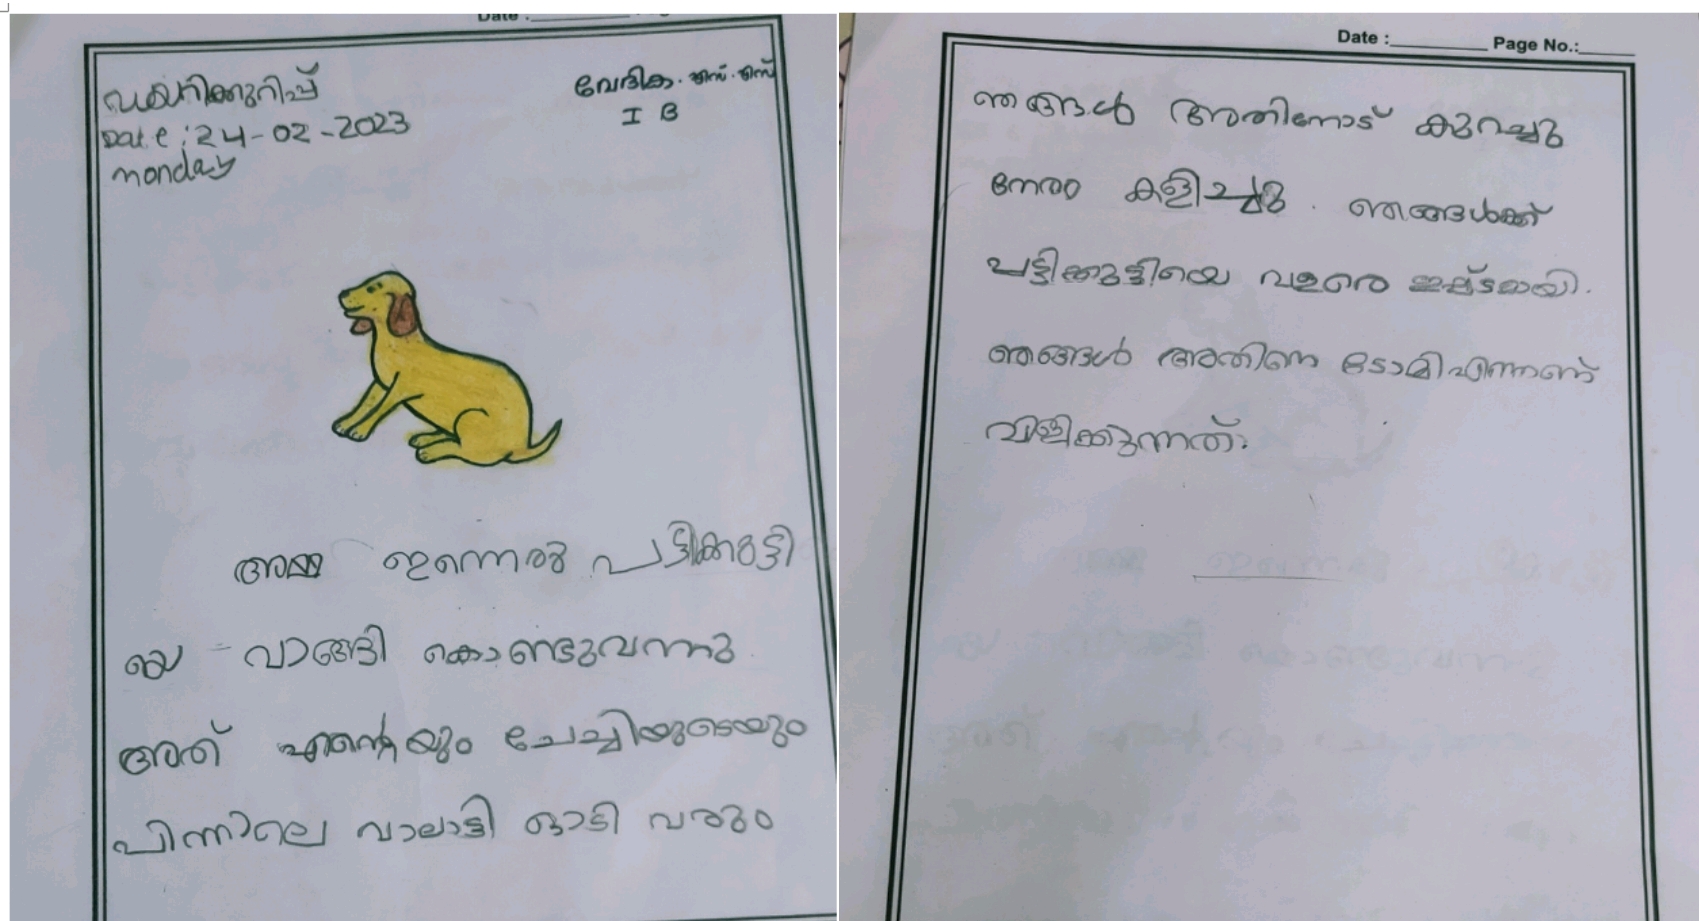 ഡയറിക്കുറിപ്പ്
Date : 24-02-2023
monday
വേദിക. എസ്. എസ്
I B
അമ്മ ഇന്നെരു പട്ടിക്കുട്ടി
യെ വാങ്ങി കൊണ്ടുവന്നു
അത് എൻ്റെയും ചേച്ചിയുടെയും
പിന്നിലെ വാലാട്ടി ഓടി വരും
Date : Page No.:
ഞങ്ങൾ അതിനോട് കുറച്ചു
നേരം കളിച്ചു. ഞങ്ങൾക്ക്
പട്ടിക്കുട്ടിയെ വളരെ ഇഷ്ടമായി.
ഞങ്ങൾ അതിനെ ടോമി എന്നണ്
വിളിക്കുന്നത്.